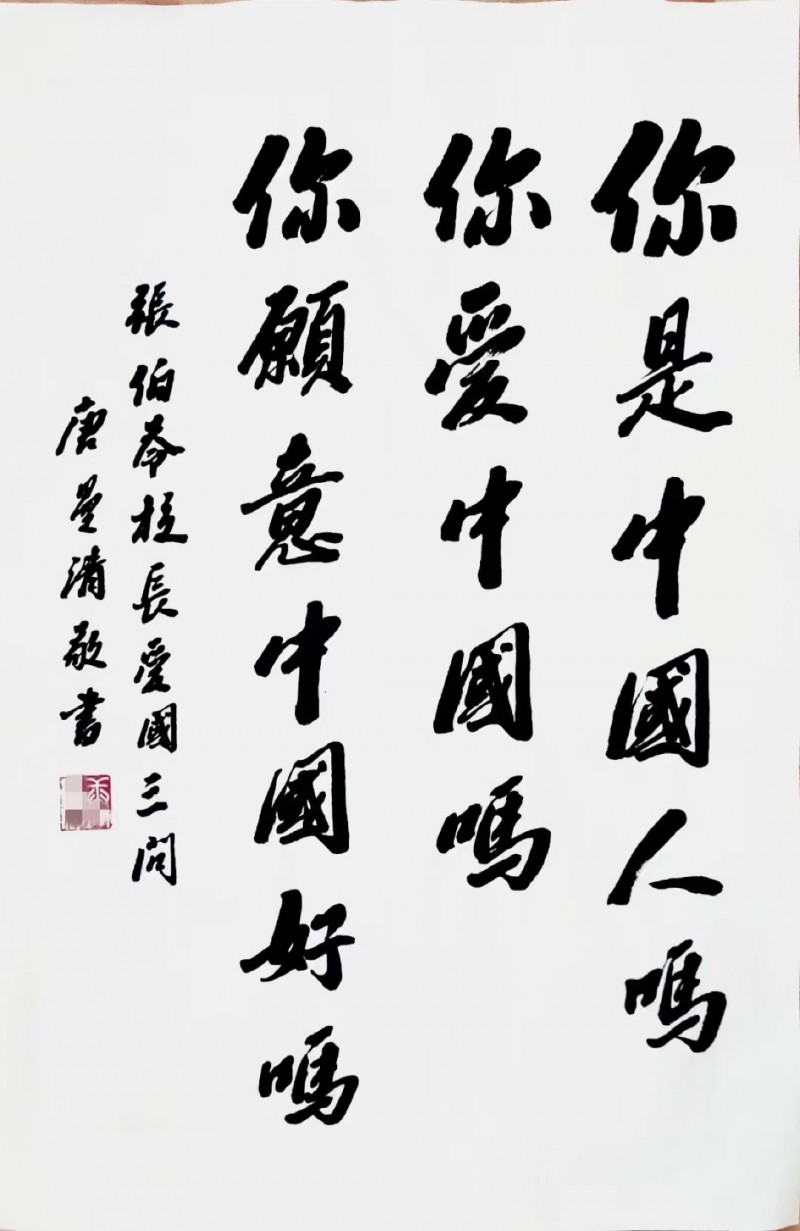 你是中國人嗎
你愛中國嗎
你願意中國好嗎
張伯苓校長愛國三問
唐星清敬書